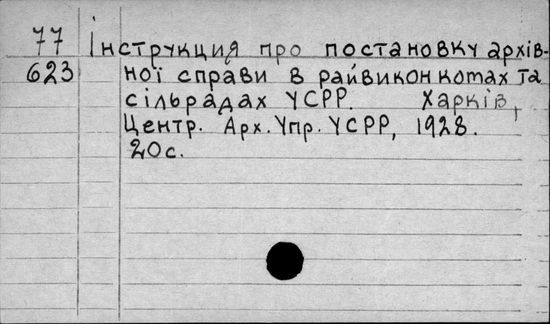 77 Інструкция про постановку архів-
623 ної справи в райвиконкомах та
сільрадах УСРР. Харків,
Центр. Арх. Упр. УСРР, 1928.
20с.